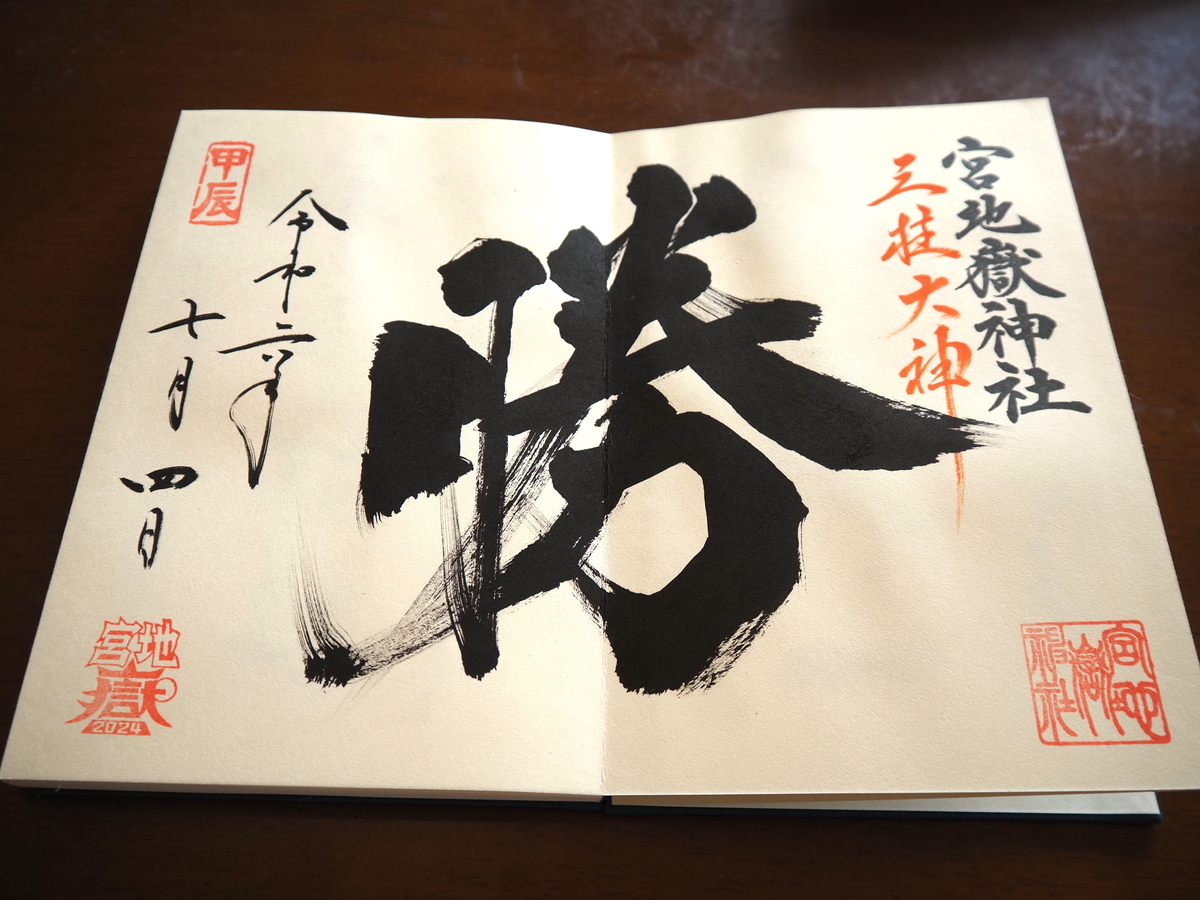 宮地嶽神社
三柱大神
宮地嶽神社
勝
令和六年
七月四日
甲辰
宮地
嶽
2024